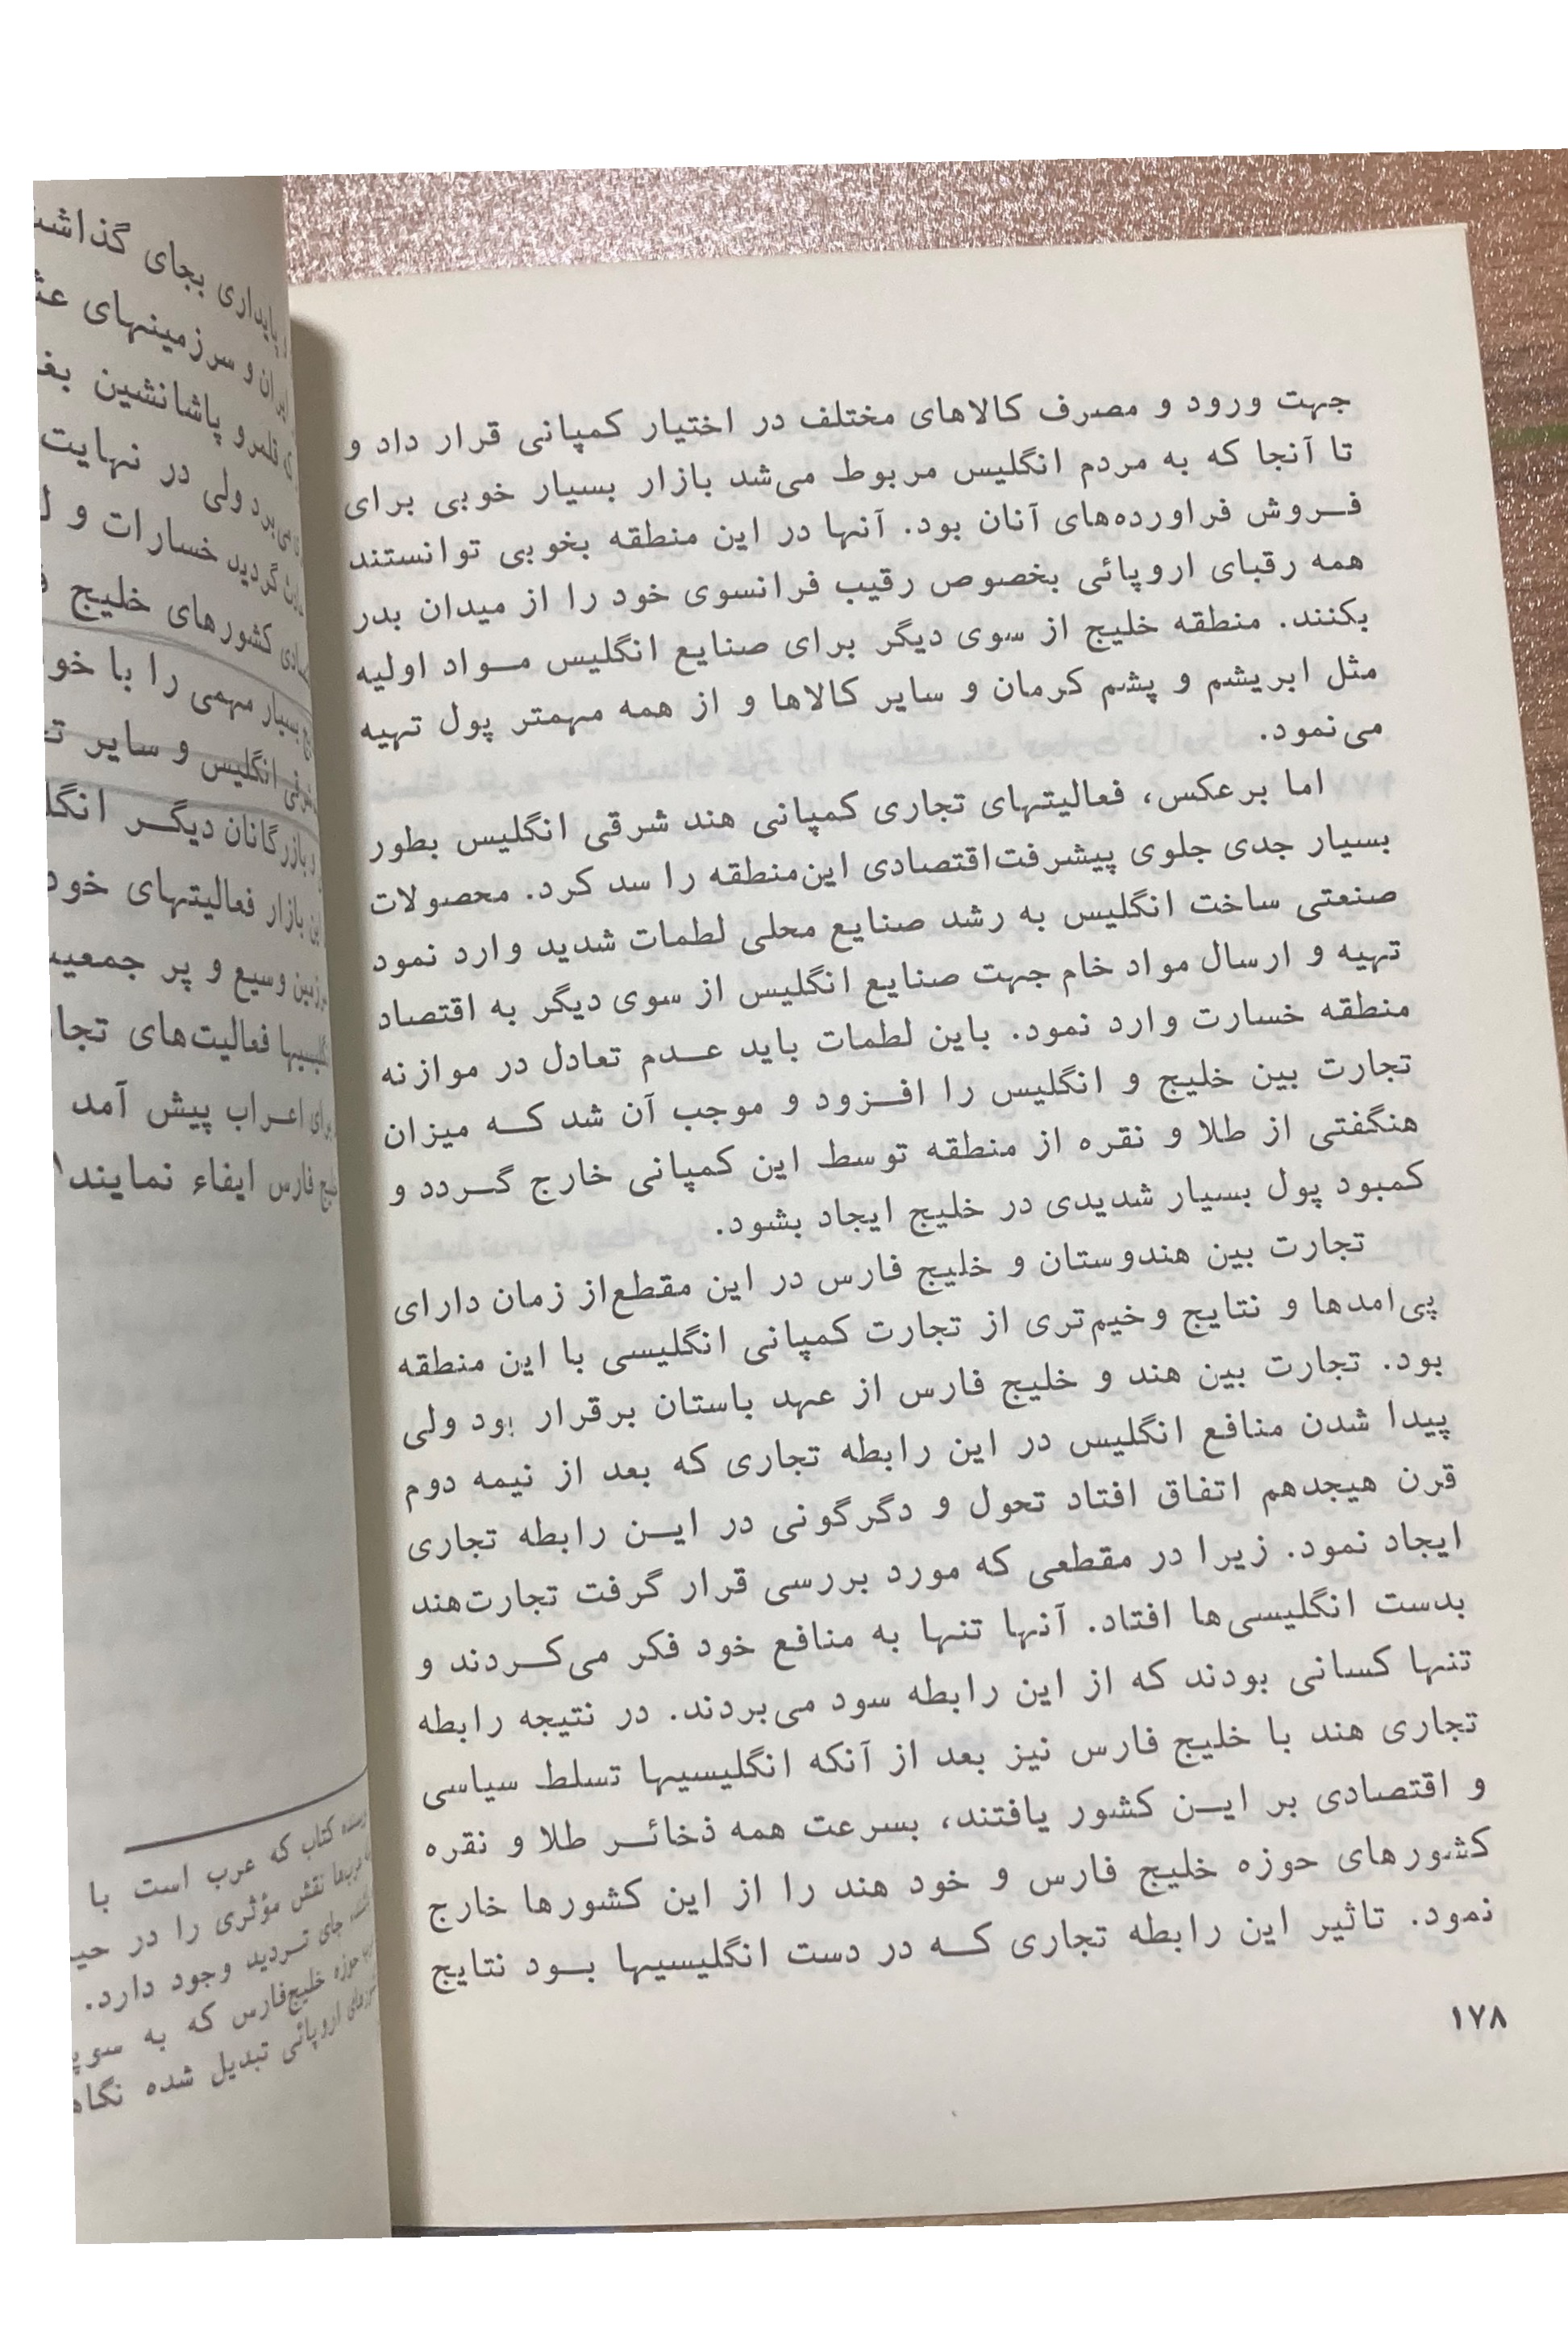 جهت ورود و مصرف کالاهای مختلف در اختیار کمپانی قرار داد و
تا آنجا که به مردم انگلیس مربوط می‌شد بازار بسیار خوبی برای
فروش فراورده‌های آنان بود. آنها در این منطقه بخوبی توانستند
همه رقبای اروپائی بخصوص رقیب فرانسوی خود را از میدان بدر
بکنند. منطقه خلیج از سوی دیگر برای صنایع انگلیس مواد اولیه
مثل ابریشم و پشم کرمان و سایر کالاها و از همه مهمتر پول تهیه
می‌نمود.
اما برعکس، فعالیتهای تجاری کمپانی هند شرقی انگلیس بطور
بسیار جدی جلوی پیشرفت‌اقتصادی این‌منطقه را سد کرد. محصولات
صنعتی ساخت انگلیس به رشد صنایع محلی لطمات شدید وارد نمود
تهیه و ارسال مواد خام جهت صنایع انگلیس از سوی دیگر به اقتصاد
منطقه خسارت وارد نمود. باین لطمات باید عدم تعادل در موازنه
تجارت بین خلیج و انگلیس را افزود و موجب آن شد که میزان
هنگفتی از طلا و نقره از منطقه توسط این کمپانی خارج گردد و
کمبود پول بسیار شدیدی در خلیج ایجاد بشود.
تجارت بین هندوستان و خلیج فارس در این مقطع‌از زمان دارای
پی‌آمدها و نتایج وخیم‌تری از تجارت کمپانی انگلیسی با این منطقه
بود. تجارت بین هند و خلیج فارس از عهد باستان برقرار بود ولی
پیدا شدن منافع انگلیس در این رابطه تجاری که بعد از نیمه دوم
قرن هیجدهم اتفاق افتاد تحول و دگرگونی در این رابطه تجاری
ایجاد نمود. زیرا در مقطعی که مورد بررسی قرار گرفت تجارت‌هند
بدست انگلیسی‌ها افتاد. آنها تنها به منافع خود فکر می‌کردند و
تنها کسانی بودند که از این رابطه سود می‌بردند. در نتیجه رابطه
تجاری هند با خلیج فارس نیز بعد از آنکه انگلیسیها تسلط سیاسی
و اقتصادی بر این کشور یافتند، بسرعت همه ذخائر طلا و نقره
کشورهای حوزه خلیج فارس و خود هند را از این کشورها خارج
نمود. تاثیر این رابطه تجاری که در دست انگلیسیها بود نتایج
۱۷۸
پایداری بجای
و سرزمینهای
قلمرو پاشانشین
ولی در نهایت
گردید خسارات و
کشورهای خلیج
بسیار مهمی را با
انگلیس و سایر
و بازرگانان دیگر
بازار فعالیتهای خود
وسیع و پر
فعالیت‌های
اعراب پیش آمد
فارس ایفاء نمایند۱
کتاب که عرب است با
نقش مؤثری را در
جای تردید وجود دارد.
حوزه خلیج‌فارس که به
اروپائی تبدیل شده